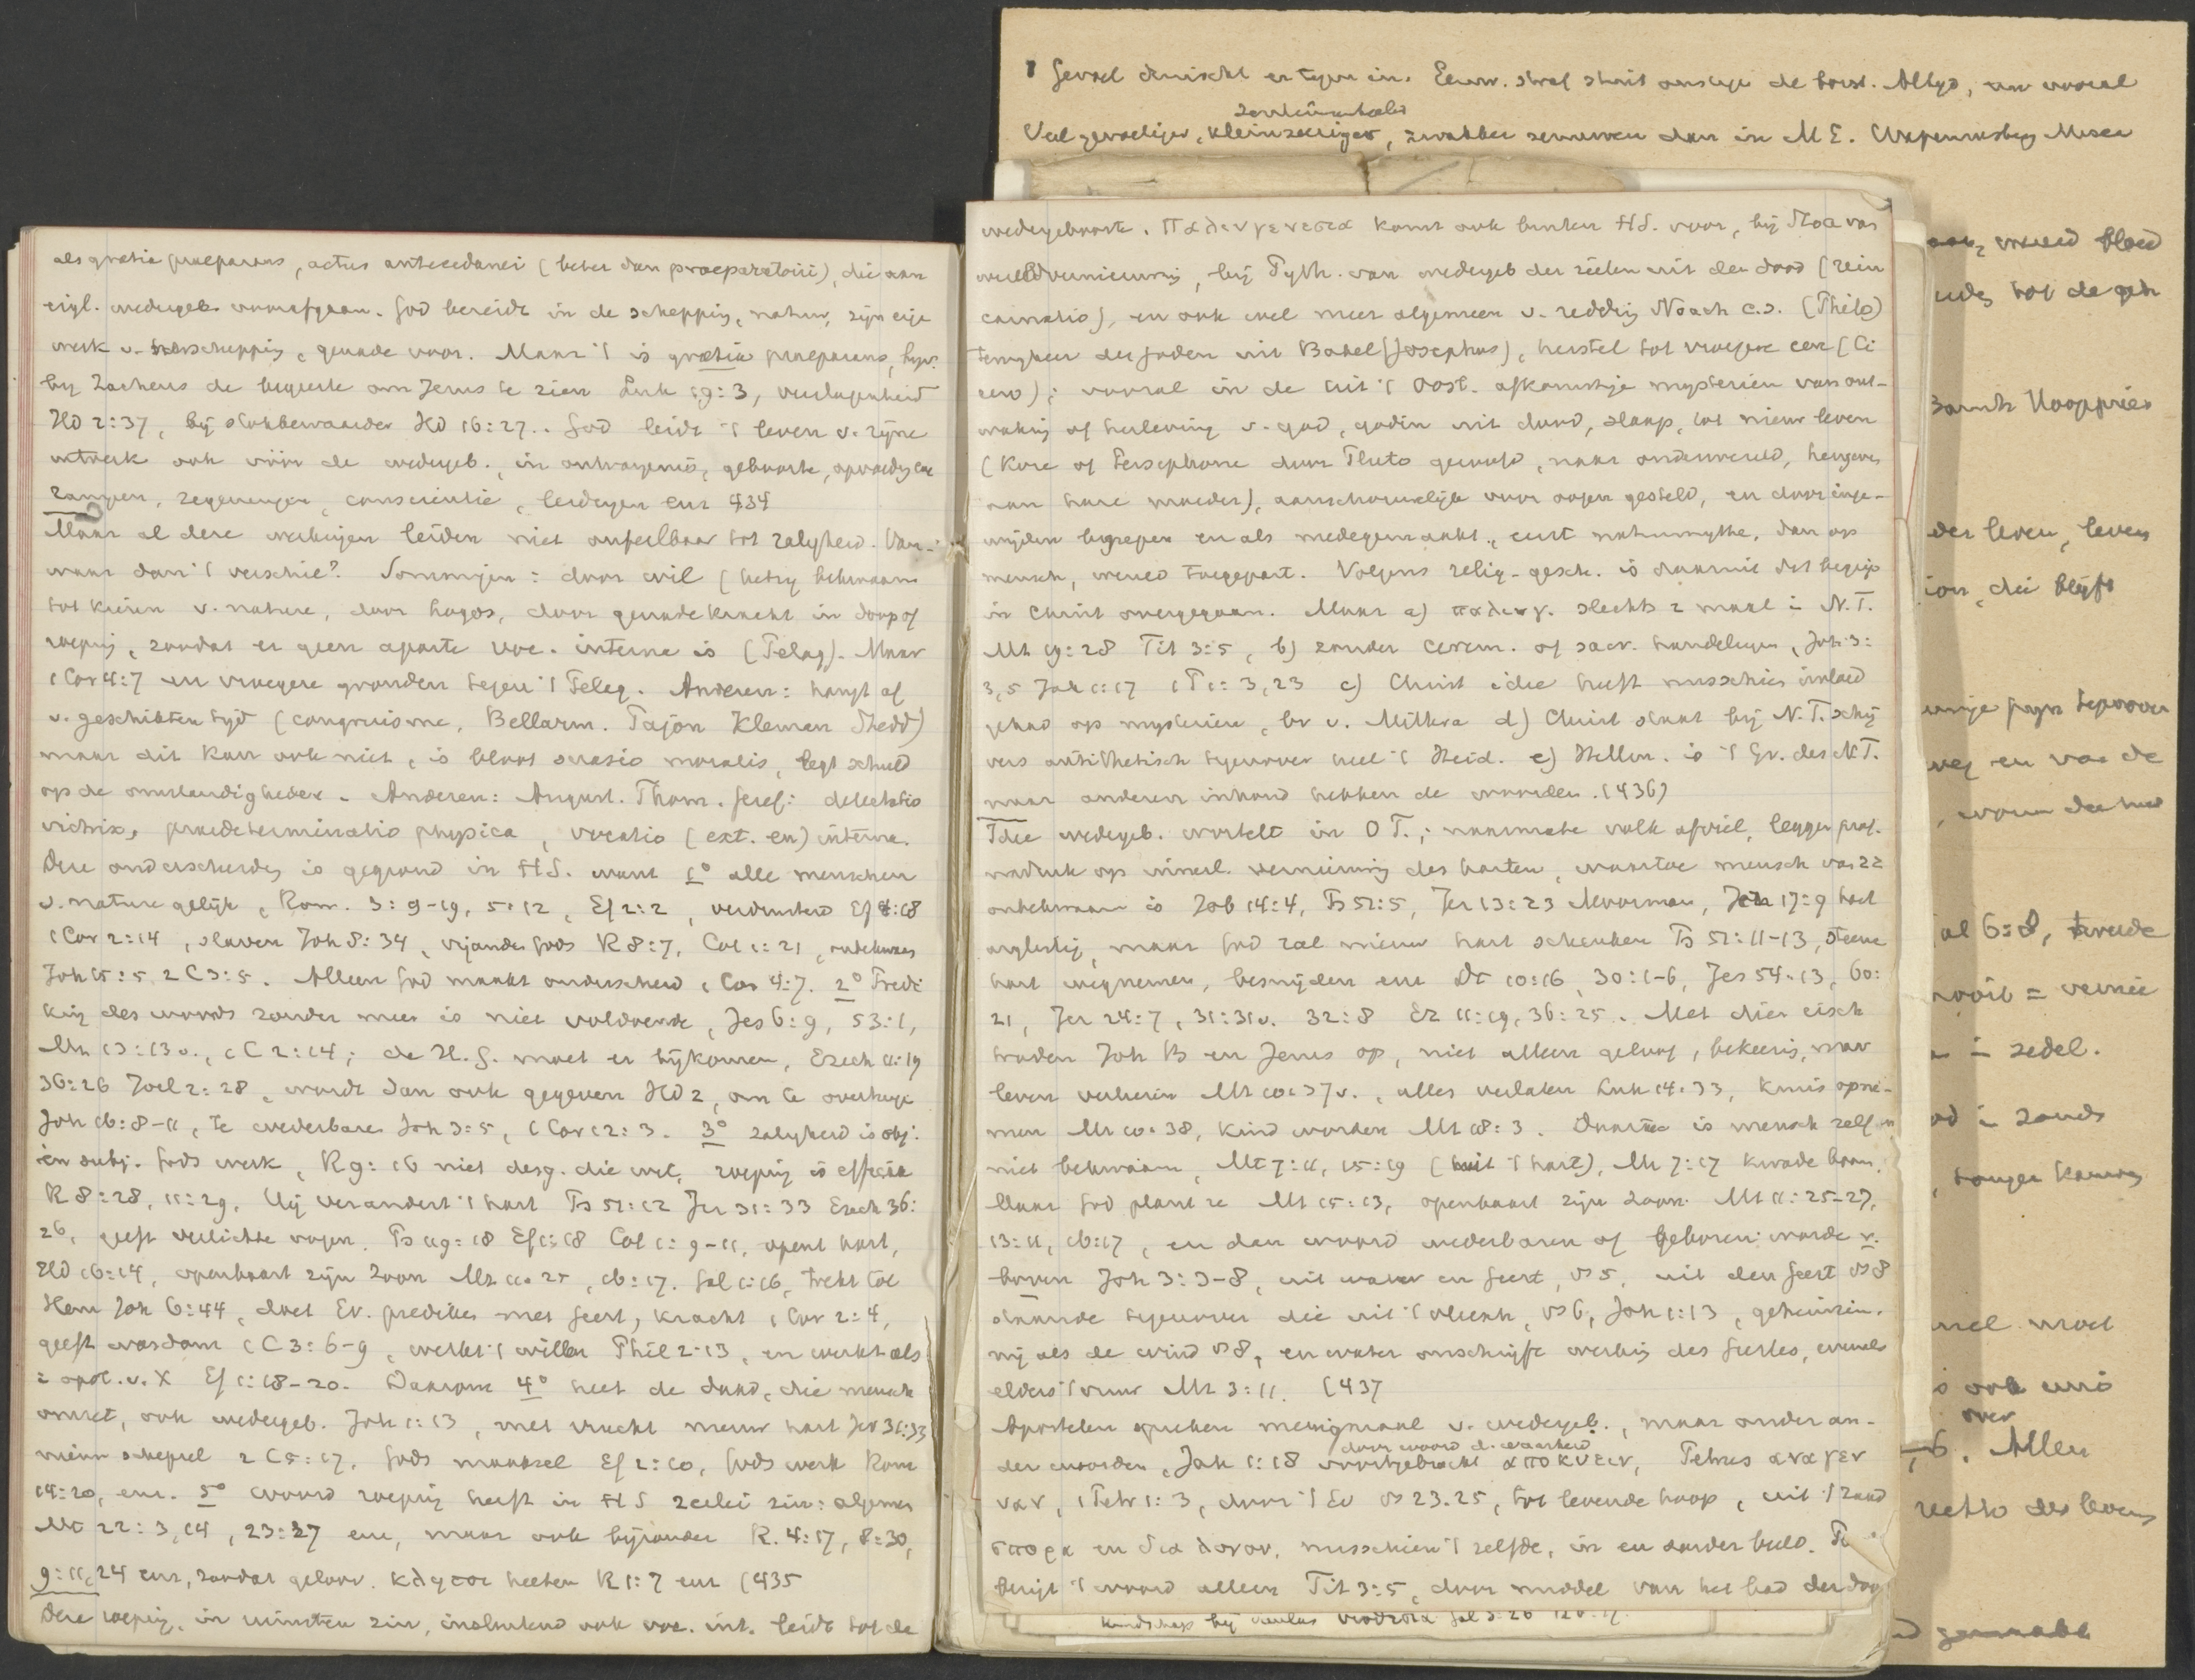 als gratia praeparans, actus antecedanei (beter dan praeparatorii), die aan
eigl. wedergeb. voorafgaan. God bereidt in de schepping, natuur, zijn eige
werk v. herschepping, genade voor. Maar 't is gratia praeparans, bijv.
bij Zacheus de begeerte om Jezus te zien Luk 19:3, verslagenheid
HD 2:37, bij stokbewaarder HD 16:27.. God leidt 't leven v. zijne
ook vóór de wedergeb., in ontvangenis, geboorte, opvoeding
rampen, zegeningen, conscientie, leidingen enz 434
Maar al deze werkingen leiden niet onfeilbaar tot zaligheid. Van-
waar dan 't verschil? Sommigen: door wil (hetzij bekwaam
tot kiezen v. nature, door Logos, door genade kracht in doop of
roeping, zoodat er geen aparte voc. interna is (Pelag). Maar
1 Cor 4:7 en vroegere gronden tegen 't Pelag. Anderen: hangt af
v. geschikten tijd (congruisme, Bellarm. Pajon Kleman Shedd)
maar dit kan ook niet, is bloot suasio moralis, legt schuld
op de omstandigheden. Anderen: August. Thom. Geref: delectatio
victrix, praedeterminatio physica, vocatio (ext. en) interna.
Deze onderscheiding is gegrond in HS. want 1° alle menschen
v. nature gelijk, Rom. 3:9-19, 5:12, Ef 2:2, verduisterd Ef 4:18
1 Cor 2:14, slaven Joh 8:34, vijanden Gods R 8:7, Col 1:21, onbekwaam
Joh 15:5 2 C 3:5. Alleen God maakt onderscheid 1 Cor 4:7. 2° Predi
king des woords zonder meer is niet voldoende, Jes 6:9, 53:1,
Mt 13:13v., 1 C 2:14; de H.G. moet er bijkomen, Ezech 11:19
36:26 Joel 2:28, wordt dan ook gegeven HD 2, om te overtuigen
Joh 16:8-11, te wederbaren Joh 3:5, 1 Cor 12:3. 3° zaligheid is obj.
en subj. Gods werk, R 9:16 niet desg. die wil, roeping is efficax
R 8:28, 11:29. Hij verandert 't hart Ps 51:12 Jer 31:33 Ezech 36:
26, geeft verlichte oogen. Ps 119:18 Ef 1:18 Col 1:9-11, opent hart,
HD 16:14, openbaart zijn Zoon Mt 11:25, 16:17. Gal 1:16, trekt tot
Hem Joh 6:44, doet Ev. prediken met geest, kracht 1 Cor 2:4,
geeft wasdom 1 C 3:6-9, werkt 't willen Phil 2:13, en werkt als
i opst. v. X Ef 1:18-20. Daarom 4° heet de daad, die mensch
omzet, ook wedergeb. Joh 1:13, met vrucht nieuw hart Jer 31:33
nieuw schepsel 2 C 5:17, Gods maaksel Ef 2:10, Gods werk Rom
14:20, enz. 5° woord roeping heeft in HS 2erlei zin: algemeen
Mt 22:3,14, 23:37 enz, maar ook bijzonder R. 4:17, 8:30,
9:11,24 enz, zoodat geloov. κλητοι heeten R 1:7 enz (435
Deze roeping, in ruimsten zin, insluitend ook voc. int. leidt tot de
wedergeboorte. Παλινγενεσια komt ook buiten HS. voor, bij Stoa van
wereldvernieuwing, bij Pyth. van wedergeb der zielen uit den dood (rein
carnatio), en ook wel meer algemeen v. redding Noach c.s. (Philo)
terugkeer der Joden uit Babel (Josephus), herstel tot vroegere eer (Ci
cero); vooral in de uit 't Oost. afkomstige mysterien van ont-
waking of herleving v. god, godin uit dood, slaap, tot nieuw leven
(Kore of Persephone door Pluto geroofd, naar onderwereld, hergeven
aan hare moeder), aanschouwelijk voor oogen gesteld, en door inge-
wijden begrepen en als medegemaakt, eerst natuurmythe, dan op
mensch, wereld toegepast. Volgens relig-gesch. is daarmee dat begrip
in Christ overgegaan. Maar a) παλινγ. slechts 2 maal i N.T.
Mt 19:28 Tit 3:5, b) zonder cerem. of sacr. handelingen, Joh 3:
3,5 Jak 1:17 1 P 1:3,23 c) Christ idee heeft misschien invloed
gehad op mysterien, bv v. Mithra d) Christ staat bij N.T. schrij
vers antithetisch tegenover heel 't Heid. e) Hellen. is 't Gr. des N.T.
maar anderen inhoud hebben de woorden. (436)
Idee wedergeb. wortelt in O T.; naarmate volk afviel, leggen prof.
nadruk op innerl. vernieuwing des harten, waartoe mensch van zz
onbekwaam is Job 14:4, Ps 51:5, Jer 13:23 Moorman, Jer 17:9 hart
arglistig, maar God zal nieuw hart schenken Ps 51:11-13, steenen
hart wegnemen, besnijden enz Dt 10:16, 30:1-6, Jes 54:13, 60:
21, Jer 24:7, 31:31v. 32:8 Ez 11:19, 36:25. Met dien eisch
traden Joh B en Jezus op, niet alleen geloof, bekeering, maar
leven verliezen Mt 10:37v., alles verlaten Luk 14:33, kruis opne-
men Mt 10:38, kind worden Mt 18:3. Daartoe is mensch zelf
niet bekwaam, Mt 7:11, 15:19 (uit 't hart), Mt 7:17 kwade boom.
Maar God plant ze Mt 15:13, openbaart zijn Zoon Mt 11:25-27,
13:11, 16:17, en dan woord wederbaren of geboren worden v.
boven Joh 3:3-8, uit water en Geest, vs 5, uit den Geest vs 8
staande tegenover die uit 't vleesch, vs 6, Joh 1:13, geheimzin.
nig als de wind vs 8, en water omschrijft werking des Geestes, evenals
elders 't vuur Mt 3:11. (437
Apostelen spreken menigmaal v. wedergeb., maar onder an-
door woord d. waarheid
der woorden, Jak 1:18 voortgebracht αποκυειν, Petrus αναγεν
ναν, 1 Petr 1:3, door 't Ev vs 23.25, tot levende hoop, uit 't zaad
σπορα en δια λογου, misschien 't zelfde, in en zonder beeld.
't woord alleen Tit 3:5, door middel van het bad der
bij Paulus υιοθεσια Gal 3:26
Gevoel druischt er tegen in. Eeuw. straf stuit
Veel gevoeliger, kleinzeeriger, zwakker zenuwen dan in M E.
sentimenteeler
bloed
tot de
der leven, leven
die blijft
en van de
al 6:8, tweede
zedel.
moet
over
Allen
des levens